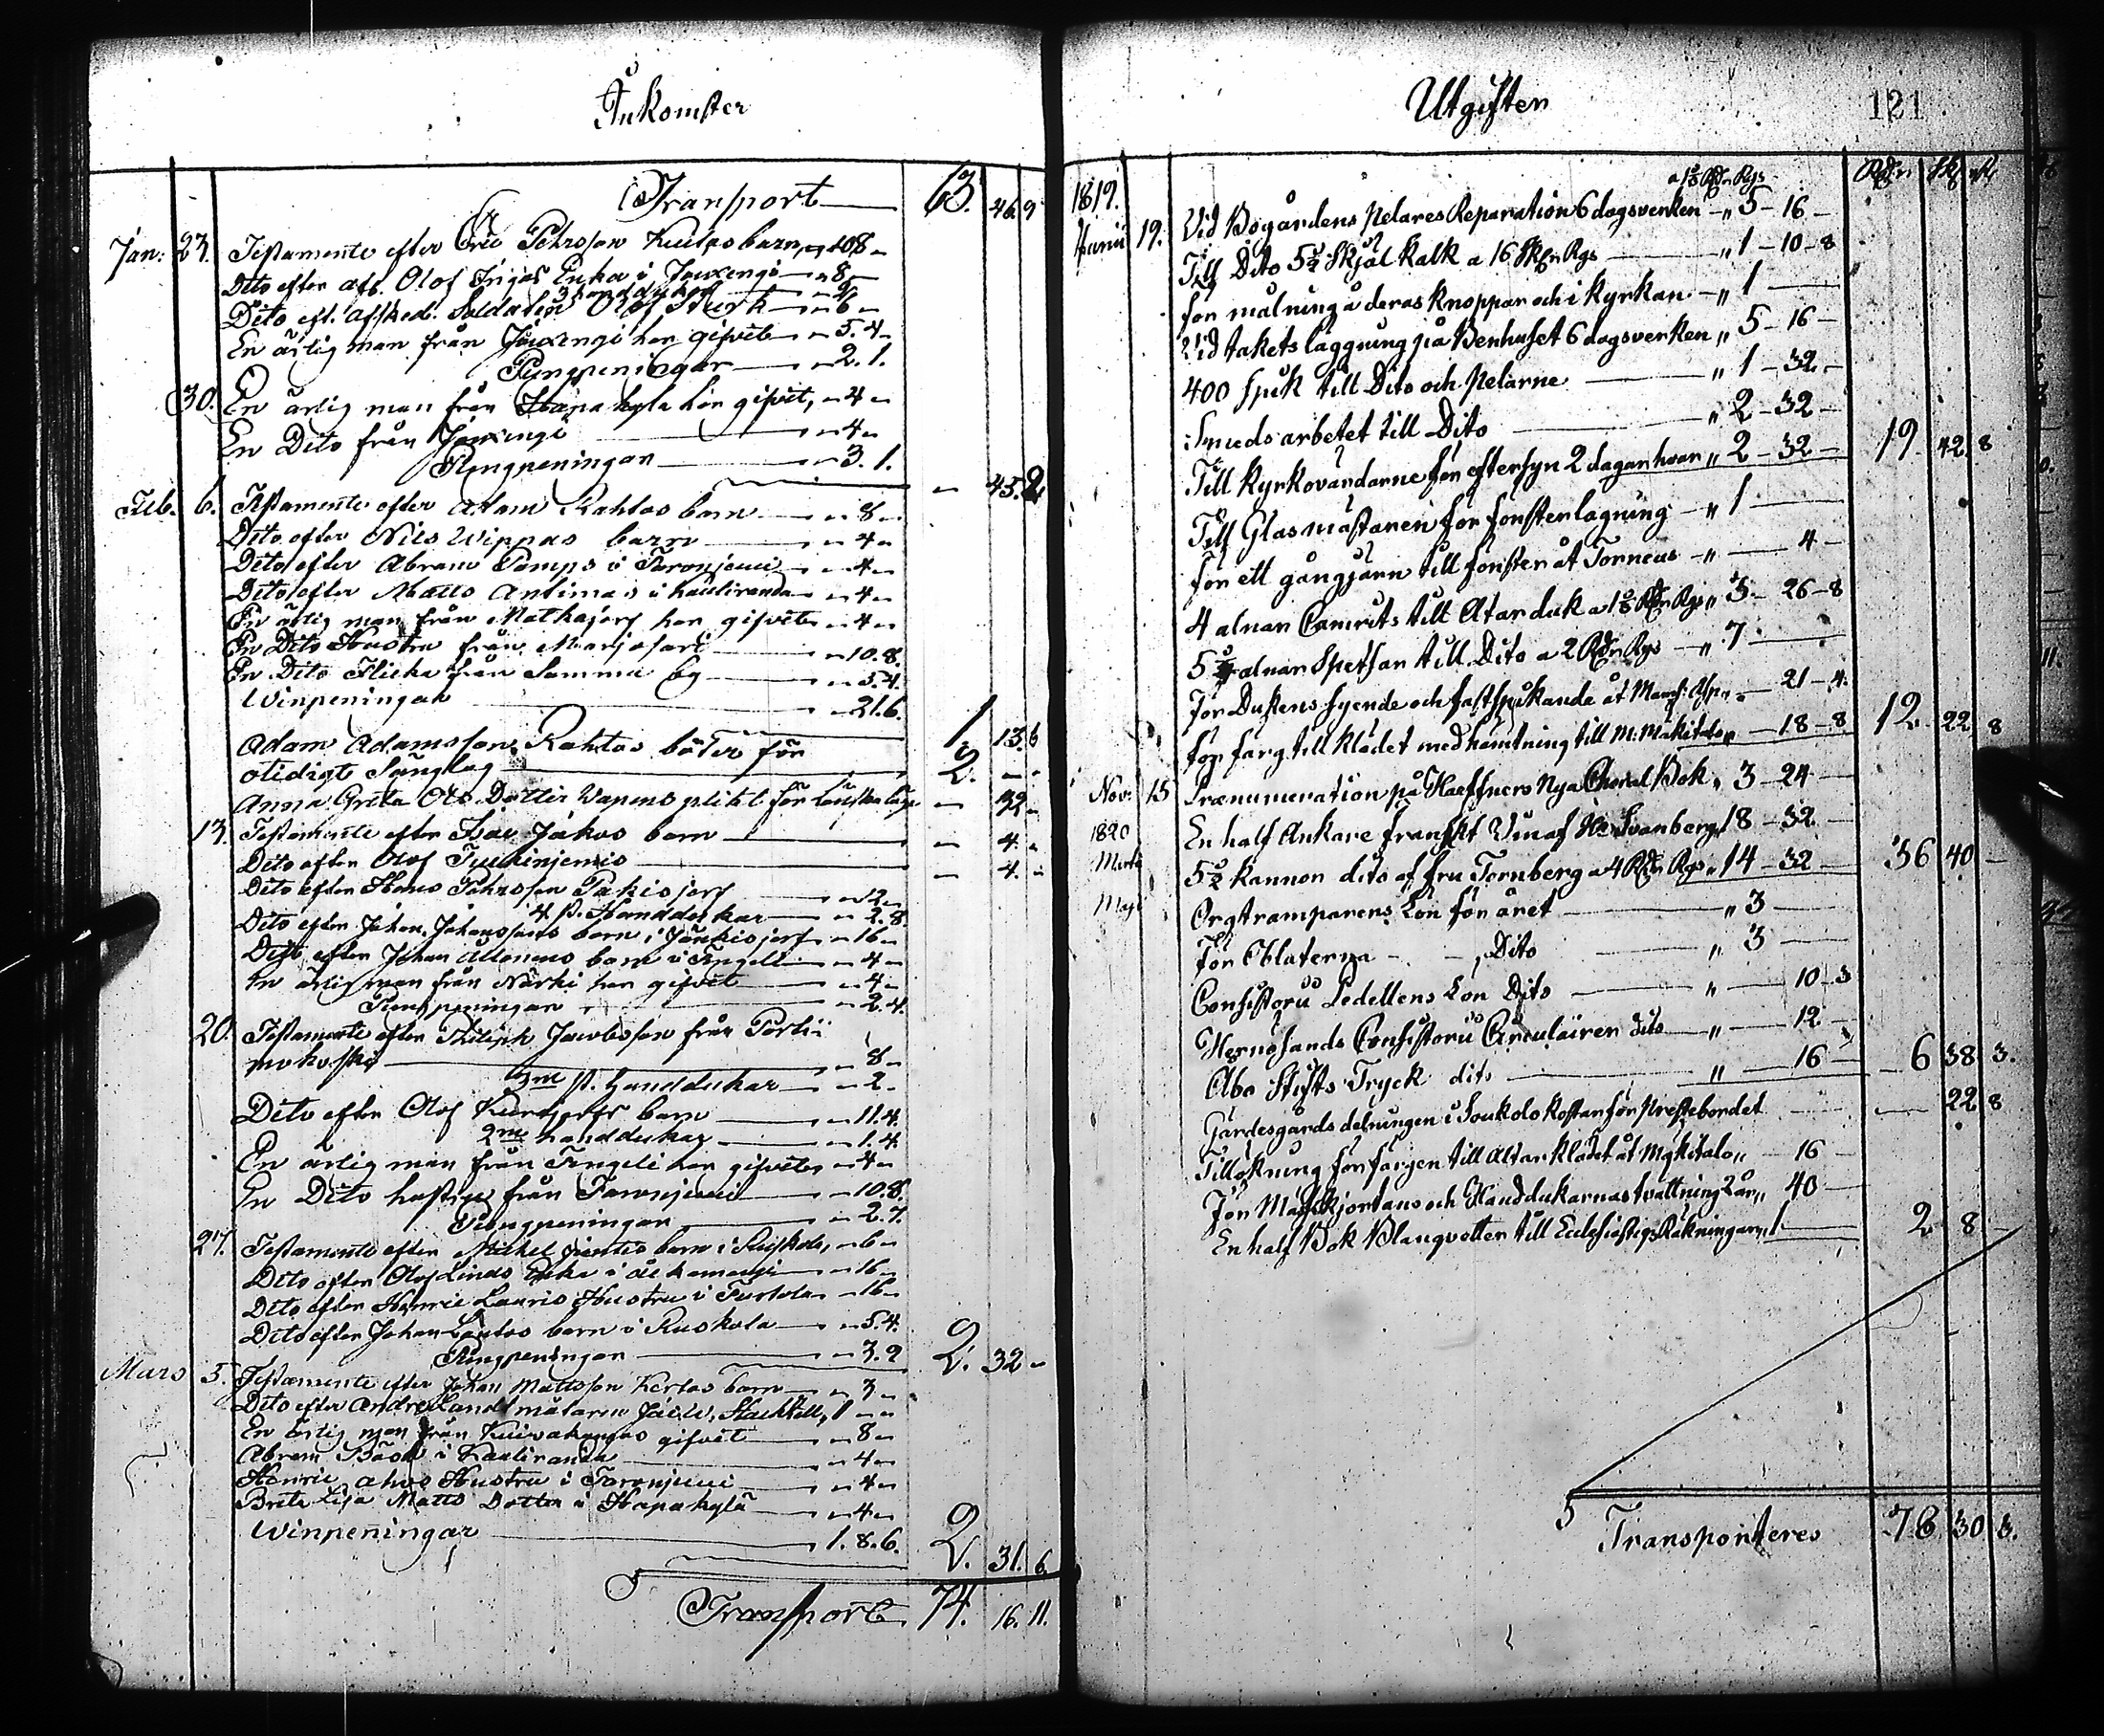 Inkomster
Transport 63. 46. 9
Jan: 23. Testamente efter Eric Pehrsson Kuitas barn, 10.8
Dito efter afl. Olof Injas Enka i Jouxengi 8
3 handdukar 2
Dito eft. Afsked. Soldaten Olof Sturk 6
En ärlig man från Jouxengi har gifvit 5.4
Pungpeningar 2.1.
30. En ärlig man från Hapakyla har gifvit, 4
En Dito från Jouxengi 4
Pungpeningar 3.1.
45. 2
Feb. 6. Testamente efter Adam Rahtas barn 8
Dito efter Nils Wippas barn 4
Dito efter Abram Pamps i Paronjemi 4
Dito efter Matts Antimas i Kauliranda 4
En ärlig man från Matkajerf har gifvit 4
En Dito Hustru från Marjosari 10.8.
En Dito Flicka från Samma by 5.4.
Winpeningar 21.6.
1. 13. 6
Adam Adamsson Rahtas böter för
otidigt Sänglag 2. - -
Anna Greta Ols Dotter Wapens plikt för Lönskaläge - 32 -
13. Testamente efter Isac Jakos barn - 4. -
Dito efter Olof Turkinjemis - 4. -
Dito efter Hans Pehrsson Pakisjerf 12
4 st. Handdukar 2.8
Dito efter Johan Johanssons barn i Jänkisjerf 16
Dito efter Johan Alamans barn i Tengeli 4
En ärlig man från Närki har gifvit 4
Pungpeningar 2.4.
20. Testamente efter Philiph Jacobsson från Portii
mokoski 8
3ne st. handdukar 2.
Dito efter Olof Kuresjerfs barn 11.4.
2ne handdukar 1.4.
En ärlig man från Tengeli har gifvit 4
En Dito hustru från Paronjemi 10.8.
Pungpeningar 2.7.
27. Testamente efter Michel barn i Ruskola, 6
Dito efter Olof Linds Enka i 16
Dito efter Henric Lauris Hustru i Turtola 16
Dito efter Johan Lautas barn i Ruskola 5.4.
Pungpeningar 3.9
2. 32 -
Mars 5. Testamente efter Johan Mattsson Kertas barn 3
Dito efter Andre Landtmätaren 1
En ärlig man från Kuivakangas gifvit 8
Abram Bäck i Kauliranda 4
Henric Ahos Hustru i Paronjemi 4
Brita Lisa Matts Dotter i Hapakylä 4
Winpeningar 1.8.6.
2. 31. 6
Transport 74. 16. 11.
Utgifter 121
Rdr Sk rst
1819. a 1⅔ Rdr Rgs
Junii 19. Vid Bogårdens pelares Reparation 6 dagsverken „ 5 - 16 -
Till Dito 5½ Skjäl kalk a 16 Sk Rgs „ 1 - 10 - 8
för målning å deras knoppar och i kyrkan „ 1 -
Vid takets läggning på Benhuset 6 dagsverken „ 5 - 16 -
400 spik till Dito och pelarne „ 1 - 32 -
Smeds arbetet till Dito „ 2 - 32 -
Till Kyrkovärdarne för eftersyn 2 dagar hvar „ 2 - 32 - 19 42 8
Till Glasmästaren för fönsterlagning „ 1 -
för ett gångjärn till fönster åt Torneus „ - 4 -
4 alnar Camrits till Altar duk a 1⅔ Rdr Rgs „ 3 - 26 - 8
alnar Spetsar till Dito a 2 Rdr Rgs „ 7 -
för Dukens syende och fastspikande åt Mams: Asp „ - 21 - 4
för färg till klädet med hämtning till M: Mäkitalo „ - 18 - 8 12. 22 8
Nov: 15 Prænumeration på Haeffners Nya Choral Bok „ 3 - 24 -
1820 En half Ankare franskt Vin af Hr Svanberg 18 - 32 -
Martii 5½ kannor dito af fru Tornberg a 4 Rdr Rgs „ 14 - 32 - 36 40 -
Maji Orgtramparens Lön för året „ 3 -
för Oblaterna - Dito „ 3 -
Consistorii Pedellens Lön Dito „ - 10 - 3
Hernösands Consistorii Circulairer dito „ - 12 -
Åbo Stifts Tryck dito „ - 16 - 6 38 3.
Gärdesgårds delningen i Soukolokostan för prestebordet - 22 8
Tillökning för färgen till Altar klädet åt Mäkitalo „ - 16 -
för Messkjortans och Handdukarnas tvättning 2 år „ 40 -
En half Bok Blanqvetter till Ecclesiastiqs Räkningar „ 1 - 2 8 -
Transporteres 76 30 3.